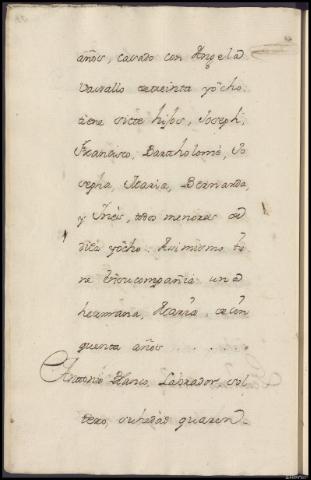 años, casado con Angela
Vassallo de treinta y ocho:
tiene siete hijos, Joseph,
Francisco, Bartholomé, Jo
sepha, Maria, Bernarda,
y Inés, todos menores de
diez y ocho. Asimismo tie
ne en su compañia una
hermana, Maria, de cin
quenta años . . . . .
Antonio Blanco, Labrador, sol
tero, su hedad quaren-